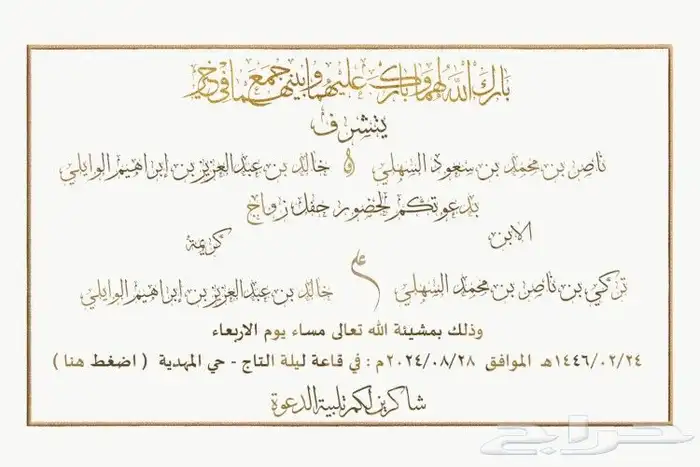 بارك الله لهما وبارك عليهما وجمع بينهما في خير
يتشرف
ناصر بن محمد بن سعود السهلي و خالد بن عبدالعزيز بن إبراهيم الوايلي
بدعوتكم لحضور حفل زواج
الابن كريمة
تركي بن ناصر بن محمد السهلي على خالد بن عبدالعزيز بن إبراهيم الوايلي
وذلك بمشيئة الله تعالى مساء يوم الاربعاء
١٤٤٦/٠٢/٢٤هـ الموافق ٢٠٢٤/٠٨/٢٨م : في قاعة ليلة التاج - حي المهدية ( اضغط هنا )
شاكرين لكم تلبية الدعوة
حراج